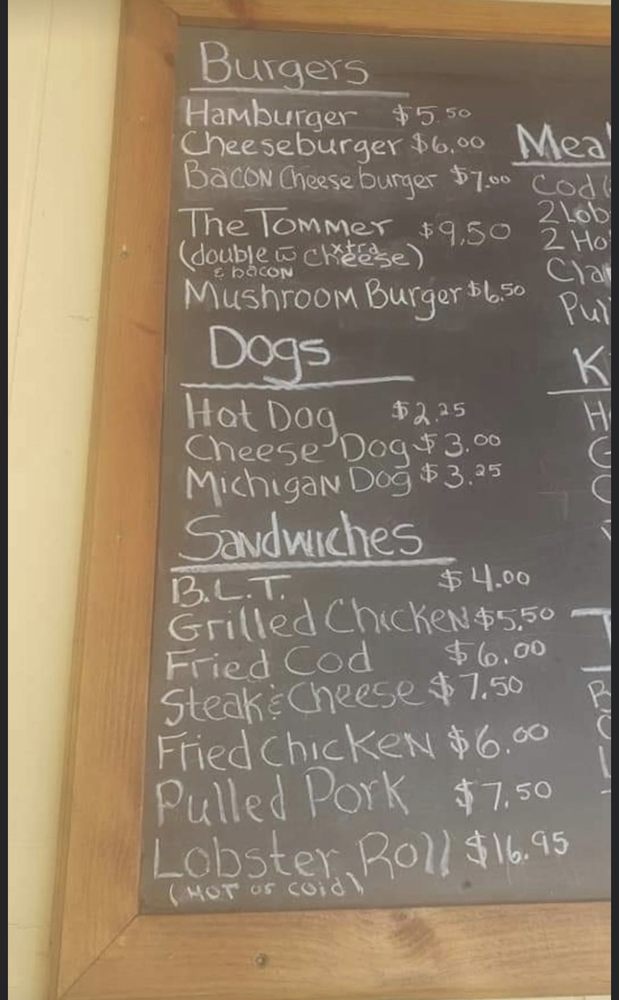 Burgers
Hamburger $5.50
Cheeseburger $6.00
Bacon Cheeseburger $7.00
The Tommer $9.50
(double w̅ xtra cheese)
& bacon
Mushroom Burger $6.50
Dogs
Hot Dog $2.25
Cheese Dog $3.00
Michigan Dog $3.25
Sandwiches
B.L.T. $4.00
Grilled Chicken $5.50
Fried Cod $6.00
Steak & Cheese $7.50
Fried Chicken $6.00
Pulled Pork $7.50
Lobster Roll $16.95
(HOT or cold)
Mea
Cod
2 Lob
2 Ho
Cla
Pul
K
H
G
C
T